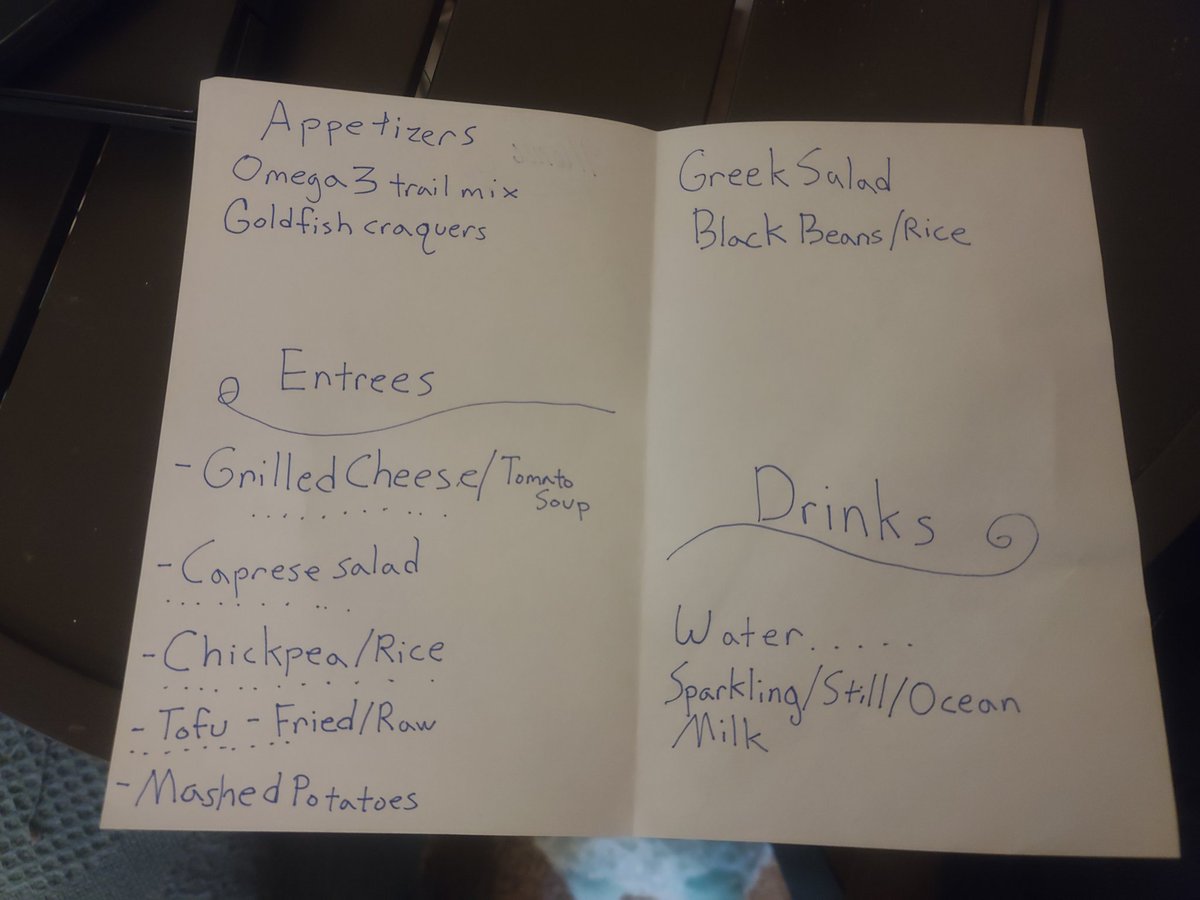 Appetizers
Omega 3 trail mix
Goldfish craquers
Entrees
- Grilled Cheese/Tomato
Soup
- Caprese salad
- Chickpea/Rice
- Tofu - Fried/Raw
- Mashed Potatoes
Greek Salad
Black Beans/Rice
Drinks
Water.....
Sparkling/Still/Ocean
Milk